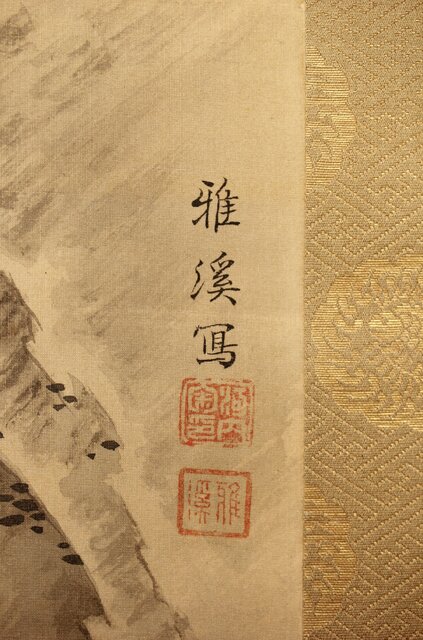 雅溪寫
雅溪